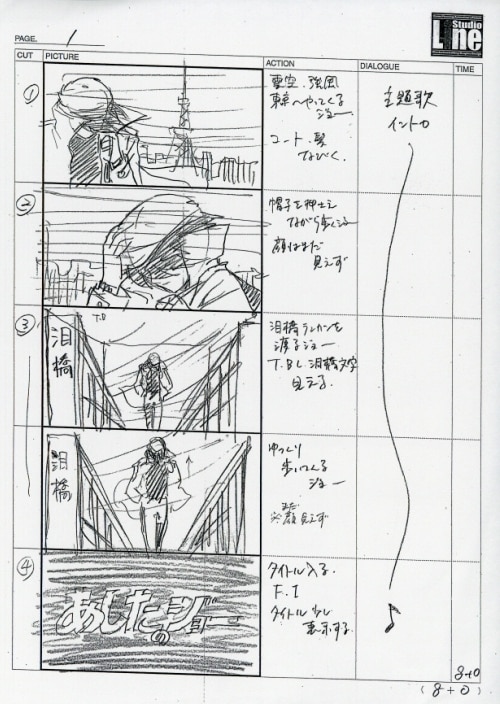 Studio
Line
PAGE. 1
CUT
PICTURE
ACTION
DIALOGUE
TIME
①
曇空、強風
東京へやってくる
ジョー
コート、髪
なびく。
主題歌
イントロ
②
帽子を押さえ
ながら歩くジョー
顔はまだ
見えず
③
T.B
泪橋
泪橋ランカンを
渡るジョー
T.B.し泪橋文字
見える。
泪橋
ゆっくり
歩いてくる
ジョー
まだ
顔見えず
④
あしたのジョー
タイトル入る。
F.I
タイトル少し
表示する。
8+0
(8+0)